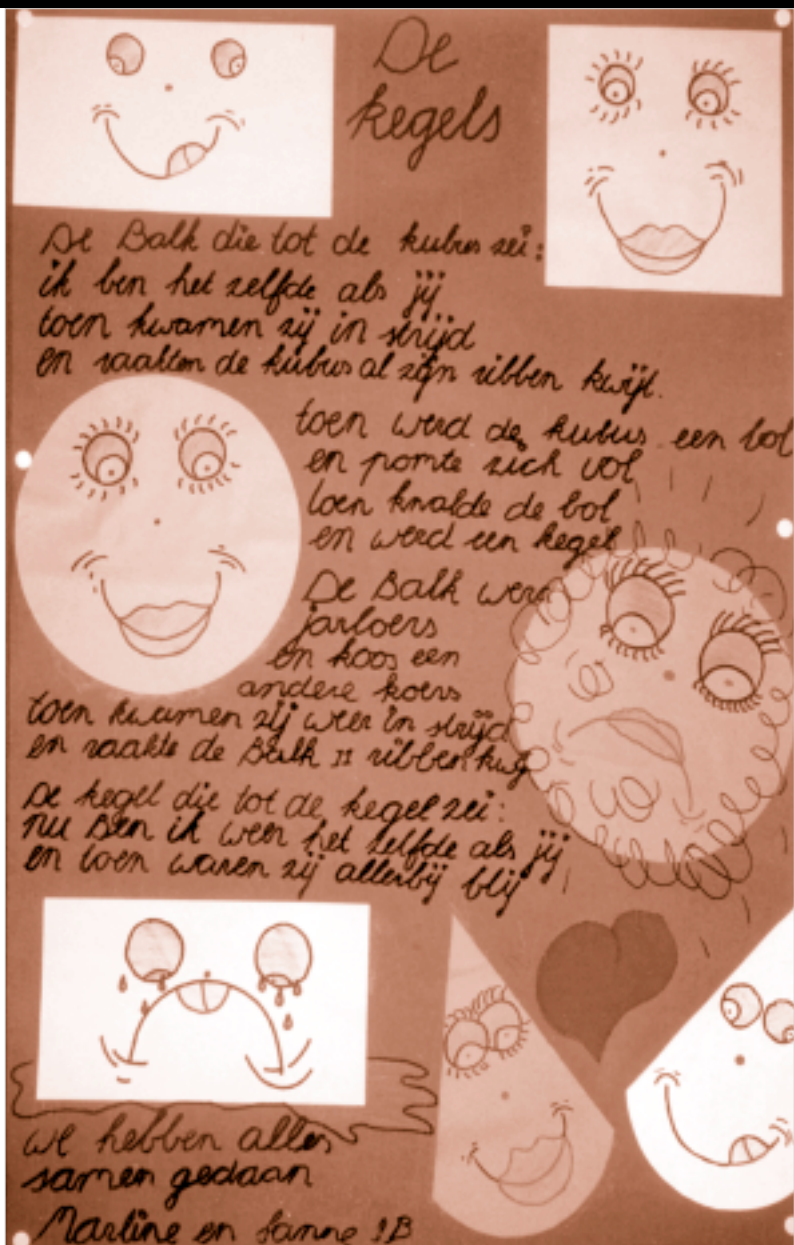 De
kegels
De Balk die tot de kubus zei:
ik ben het zelfde als jij
toen kwamen zij in strijd
en raakten de kubus al zijn ribben kwijt.
toen werd de kubus een bol
en pomte zich vol
toen knalde de bol
en werd een kegel
De Balk werd
jarloers
en koos een
andere koers
toen kwamen zij weer in strijd
en raakte de Balk 11 ribben kwijt
De kegel die tot de kegel zei:
nu Ben ik weer het zelfde als jij
en toen waren zij allerbij blij
we hebben alles
samen gedaan
Martine en Sanne 1B